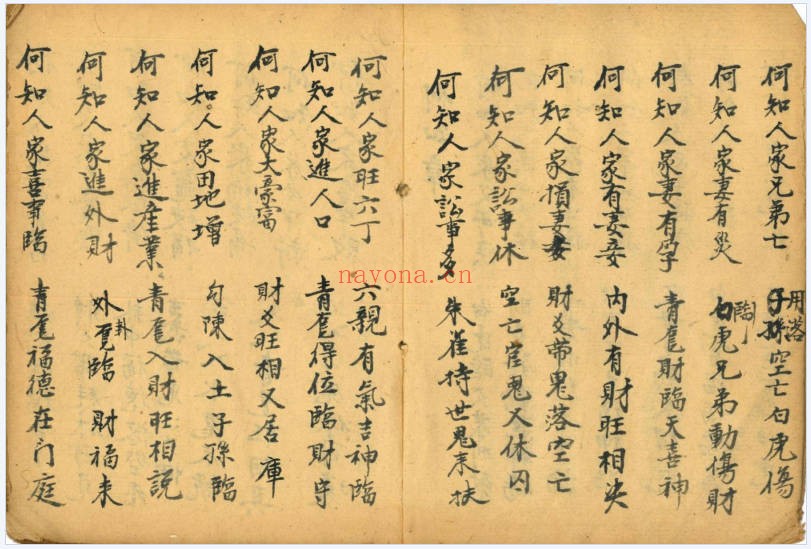 何知人家兄弟七 用落空亡白虎傷
何知人家妻有災 白虎臨兄弟動傷財
何知人家妻有孕 青龍財臨天喜神
何知人家有妻妾 内外有財旺相決
何知人家損妻 財爻帶鬼落空亡
何知人家訟事休 空亡官鬼又休囚
何知人家訟事多 朱雀持世鬼来扶
何知人家旺六丁 六親有氣吉神臨
何知人家進人口 青龍得位臨財守
何知人家大豪富 財爻旺相又居庫
何知人家田地增 勾陳入土子孫臨
何知人家進產業 青龍入財旺相說
何知人家進外財 外卦龍臨財福来
何知人家喜事臨 青龍福德在门庭
nayona.cn